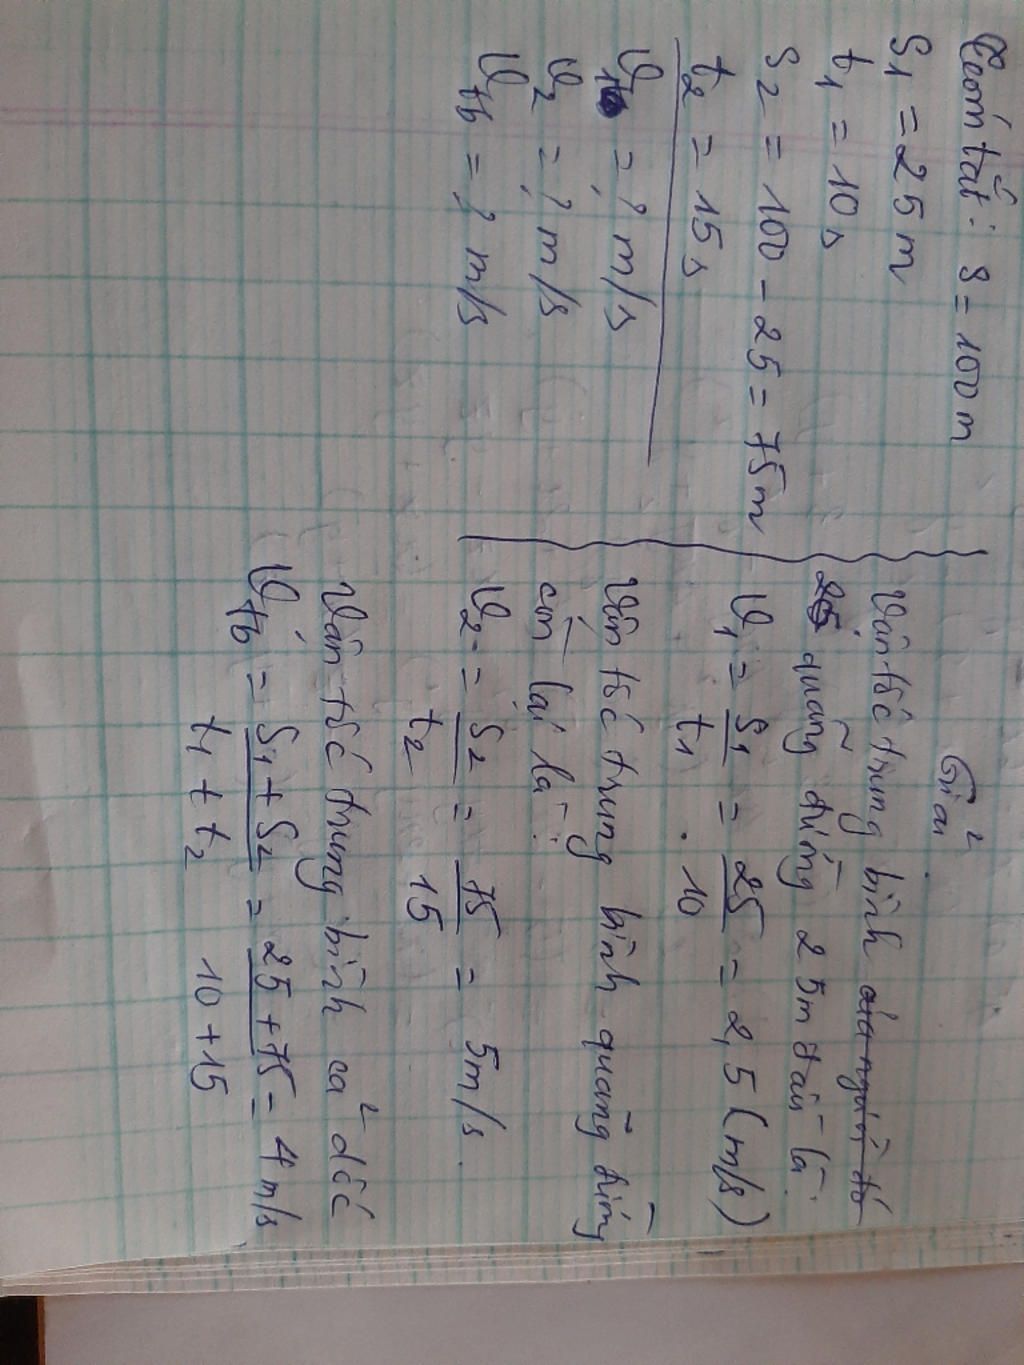 Tóm tắt: S = 100 m
S1 = 25 m
t1 = 10 s
S2 = 100 - 25 = 75 m
t2 = 15 s
v1 = ? m/s
v2 = ? m/s
vtb = ? m/s
Giải
Vận tốc trung bình của người đó
quãng đường 25m đầu là:
v1 = S1/t1 = 25/10 = 2,5 (m/s)
Vận tốc trung bình quãng đường
còn lại là:
v2 = S2/t2 = 75/15 = 5m/s.
Vận tốc trung bình cả dốc
vtb = S1 + S2/t1 + t2 = 25 + 75/10 + 15 = 4 m/s